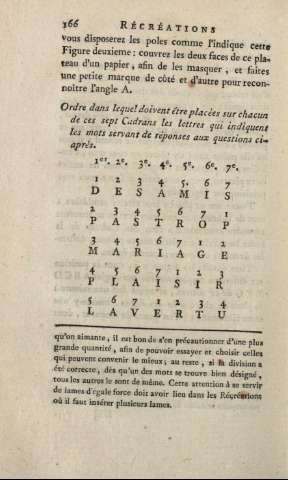 166 RÉCRÉATIONS
vous disposerez les poles comme l'indique cette
Figure deuxieme : couvrez les deux faces de ce pla-
teau d'un papier, afin de les masquer, et faites
une petite marque de côté et d'autre pour recon-
noître l'angle A.
Ordre dans lequel doivent être placées sur chacun
de ces sept Cadrans les lettres qui indiquent
les mots servant de réponses aux questions ci-
après.
1er. 2e. 3e. 4e. 5e. 6e. 7e.
1 2 3 4 5. 6 7
D E S A M I S
2 3 4 5 6 7 1
P A S T R O P
3 4 5 6 7 1 2
M A R I A G E
4 5 6 7 1 2 3
P L A I S I R
5 6 7 1 2 3 4
L A V E R T U
qu'on aimante, il est bon de s'en précautionner d'une plus
grande quantité, afin de pouvoir essayer et choisir celles
qui peuvent convenir le mieux ; au reste, si la division a
été correcte, dès qu'un des mots se trouve bien désigné,
tous les autres le sont de même. Cette attention à se servir
de lames d'égale force doit avoir lieu dans les Récréations
où il faut insérer plusieurs lames.